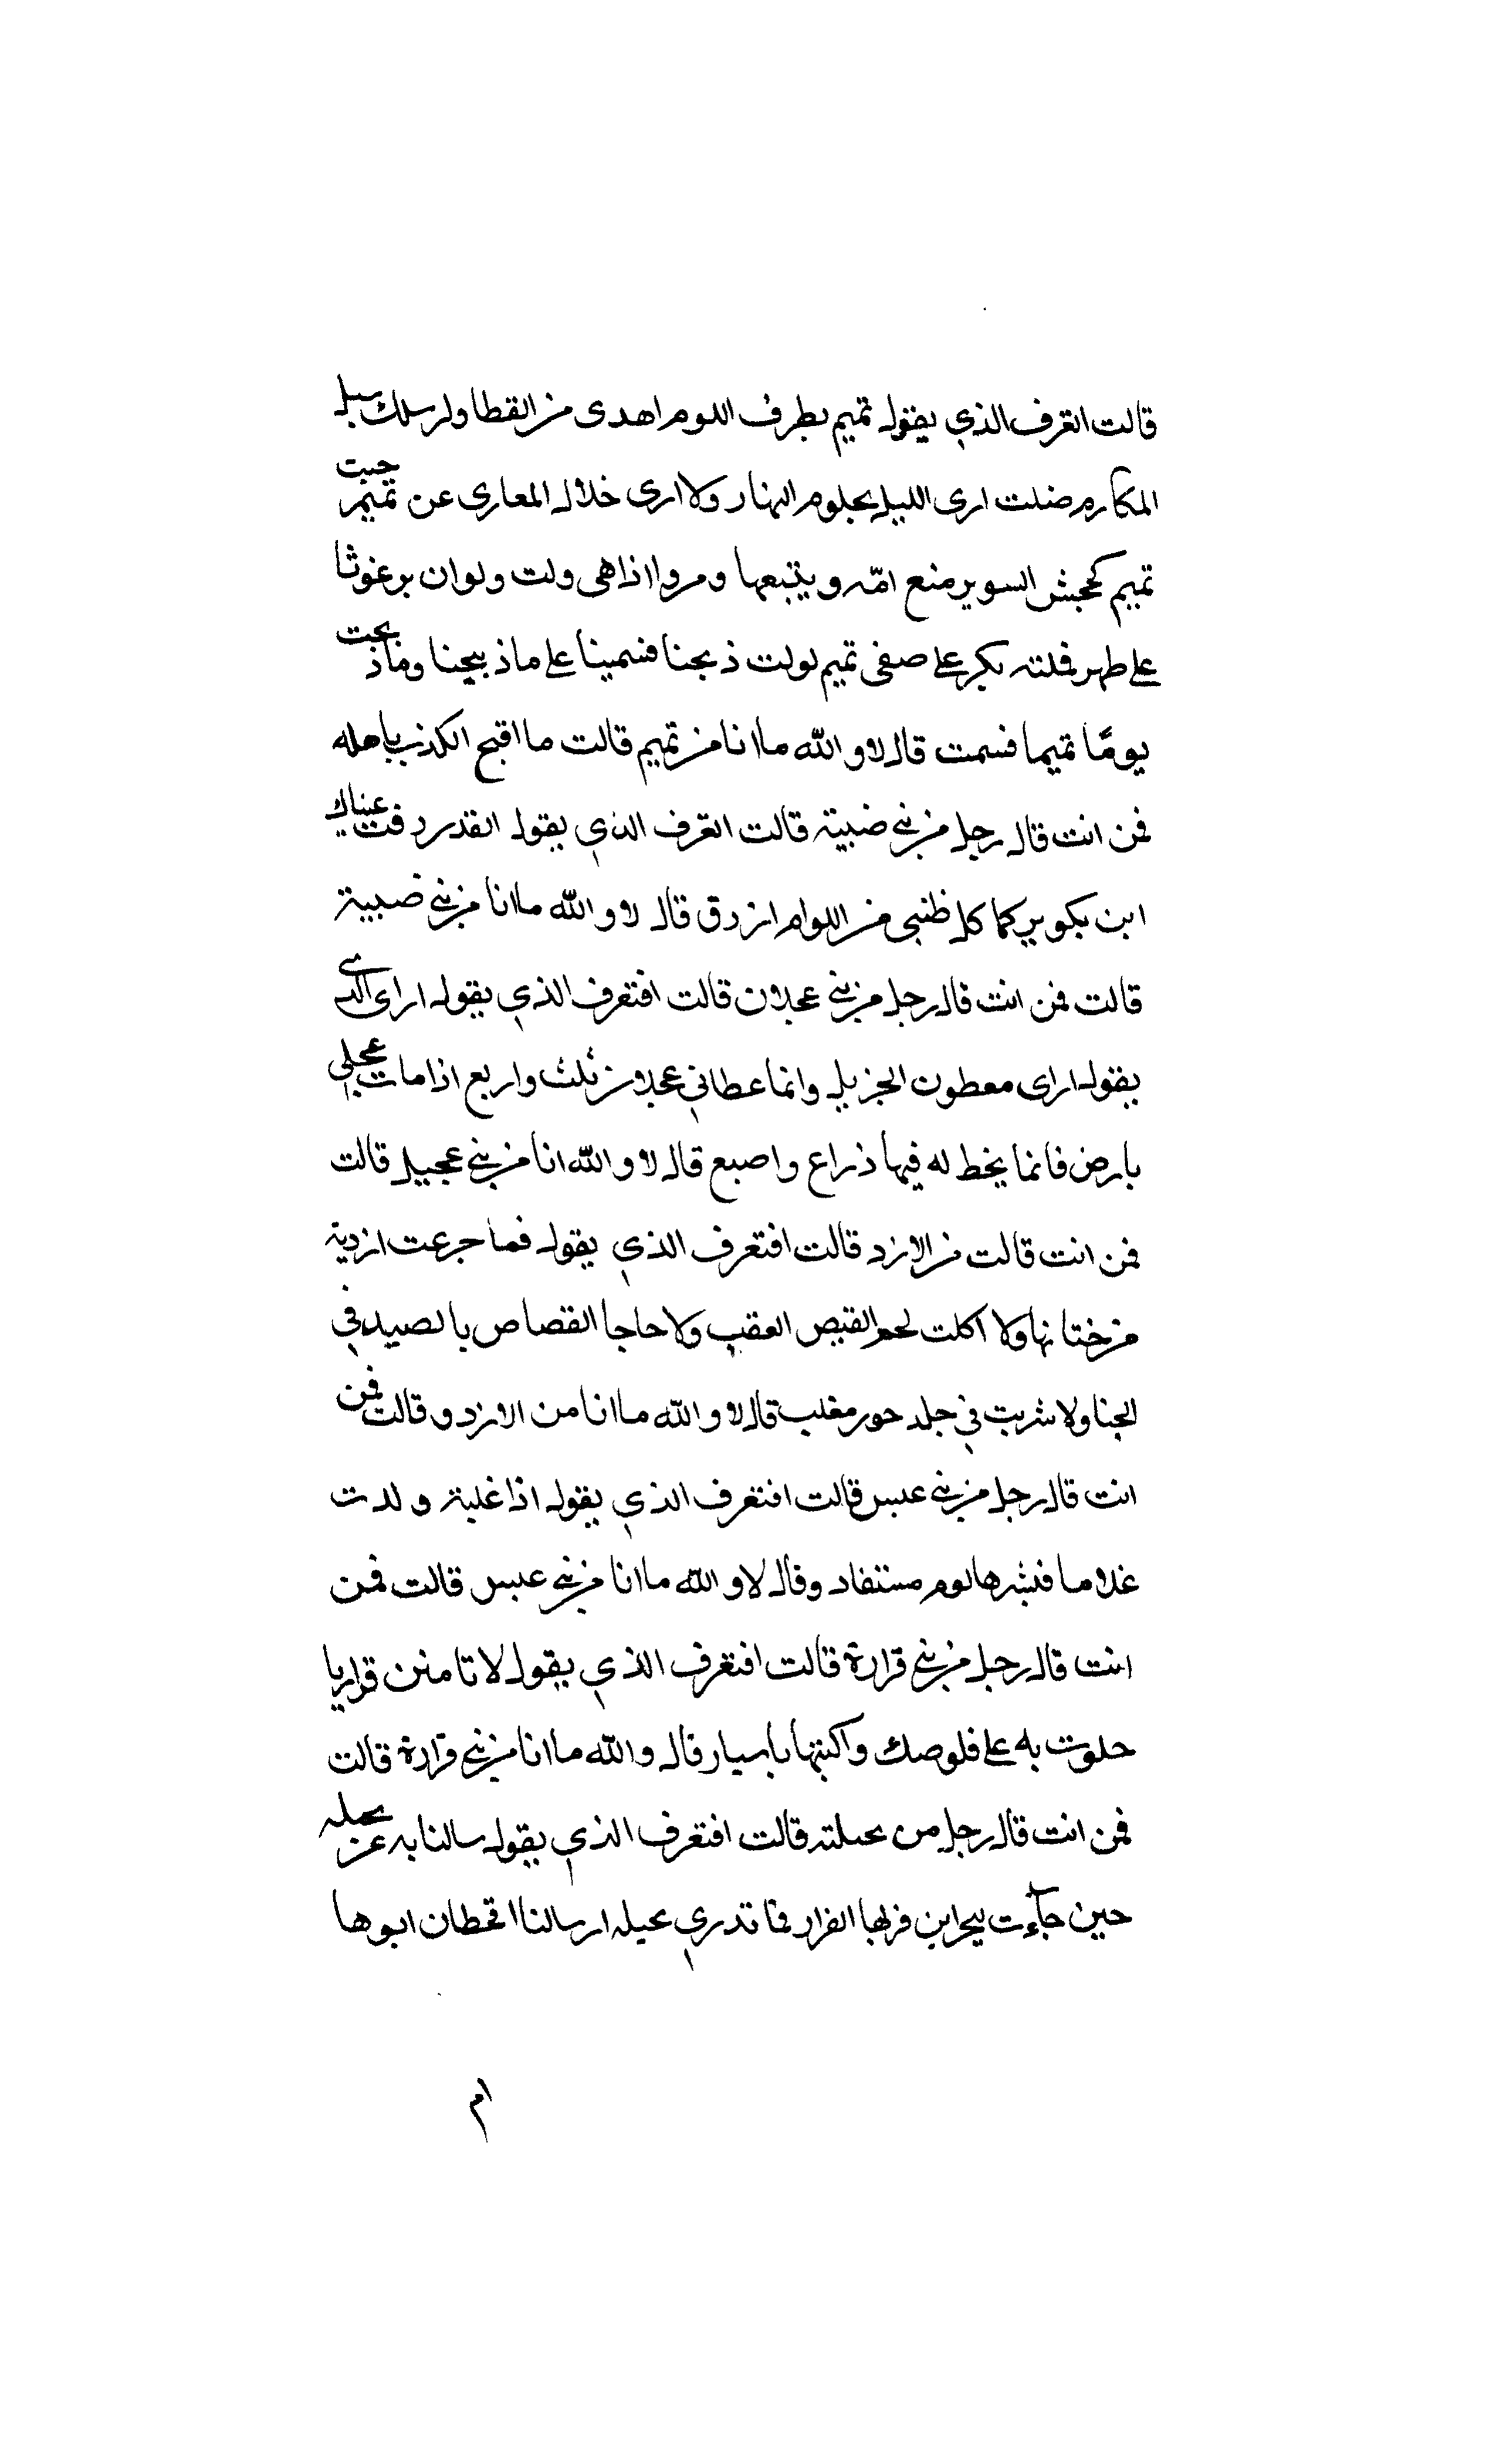 قالت اتعرف الذي يقول تميم بطرف اللوم اهدى من القطا ولو سلك سبل
المكارم ضلت ارى الليل يجلوم النهار ولا ارى خلال المعارى عن تميم جبت
تميم كجحش السوير منع امّه ويتبعها ومروا اذا هى ولت ولو ان برغوثا
على ظهر قلته بكر على صفى تميم لولت ذبحنا فسمينا على ما ذبيحنا وما ذبحت
يومًا تميما فسمت قال لا والله ما انا من تميم قالت ما اقبح الكذب باهله
فمن انت قال رجل من بنى ضبية قالت اتعرف الذي يقول القد زرقت عيناك
ابن بكوير كما كل ظبى من اللوام ازرق قال لا والله ما انا من بنى ضبية
قالت فمن انت قال رجل من بنى عجلان قالت افتعرف الذي يقول ارى الذى
يقول ارى معطون الجزيل وانما عطانى عجلان ثلث واربع اذا مات عجلي
بارض فانما يخط له فيها ذراع واصبع قال لا والله انا من بنى عجيل قالت
فمن انت قالت من الازد قالت افتعرف الذي يقول فما جرعت ازدية
من ختانها ولا اكلت لحم القبص العقب ولا حاجا القصاص بالصيد في
الجنا ولا شربت في جلد حور مغلب قال لا والله ما انا من الازد وقالت فمن
انت قال رجل من بنى عبس قالت افتعرف الذي يقول اذا غلبة ولدت
غلاما فبشرها لوم مستفاد وقال لا والله ما انا من بنى عبس قالت فمن
انت قال رجل من بنى قرارة قالت افتعرف الذي يقول لا تامنن قراريا
حلوت به على قلوصك واكتبها باسيار قال والله ما انا من بنى قرارة قالت
فمن انت قال رجل من بجيلته قالت افتعرف الذي يقول سالنا به عن بجيله
حين جآءت ليجر اين قرلها القرار فما تدري بجيله ار سالنا اقحطان ابوها
ام